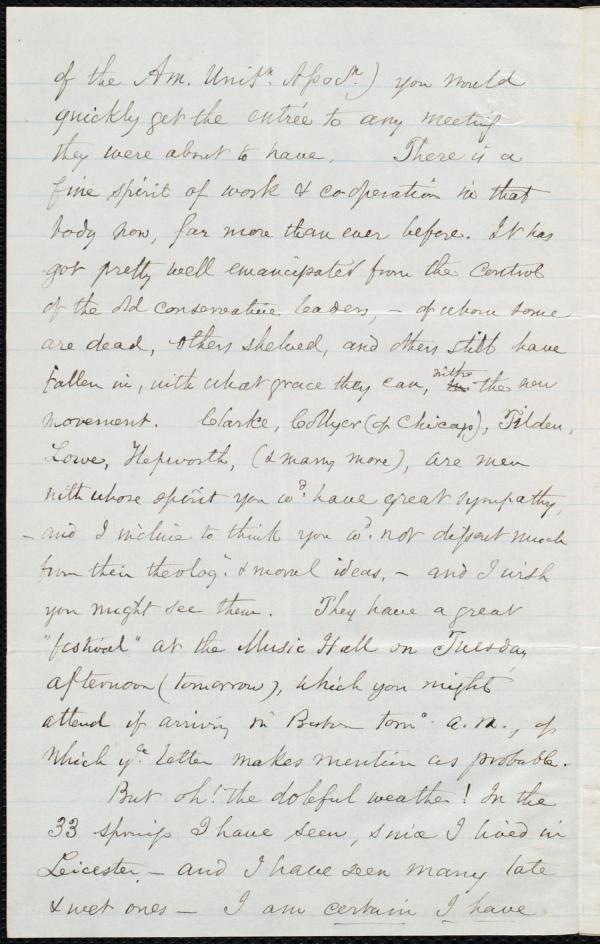 of the Am. Unitn. Assocn.) you would
quickly get the entrée to any meeting
they were about to have. There is a
fine spirit of work & co-operation in that
body now, far more than ever before. It has
got pretty well emancipated from the control
of the old conservative leaders, - of whom some
are dead, others shelved, and others still have
fallen in, with what grace they can, with the new
movement. Clarke, Collyer (of Chicago), Tilden,
Lowe, Hepworth, (& many more), are men
with whose spirit you wd. have great sympathy,
- and I incline to think you wd. not dissent much
from their theolog. & moral ideas, - and I wish
you might see them. They have a great
"festival" at the Music Hall on Tuesday
afternoon (tomorrow), which you might
attend if arriving in Boston tomo. a.m., of
which yr. letter makes mention as probable.
But oh! the doleful weather! In the
33 springs I have seen, since I lived in
Leicester, - and I have seen many late
& wet ones - I am certain I have